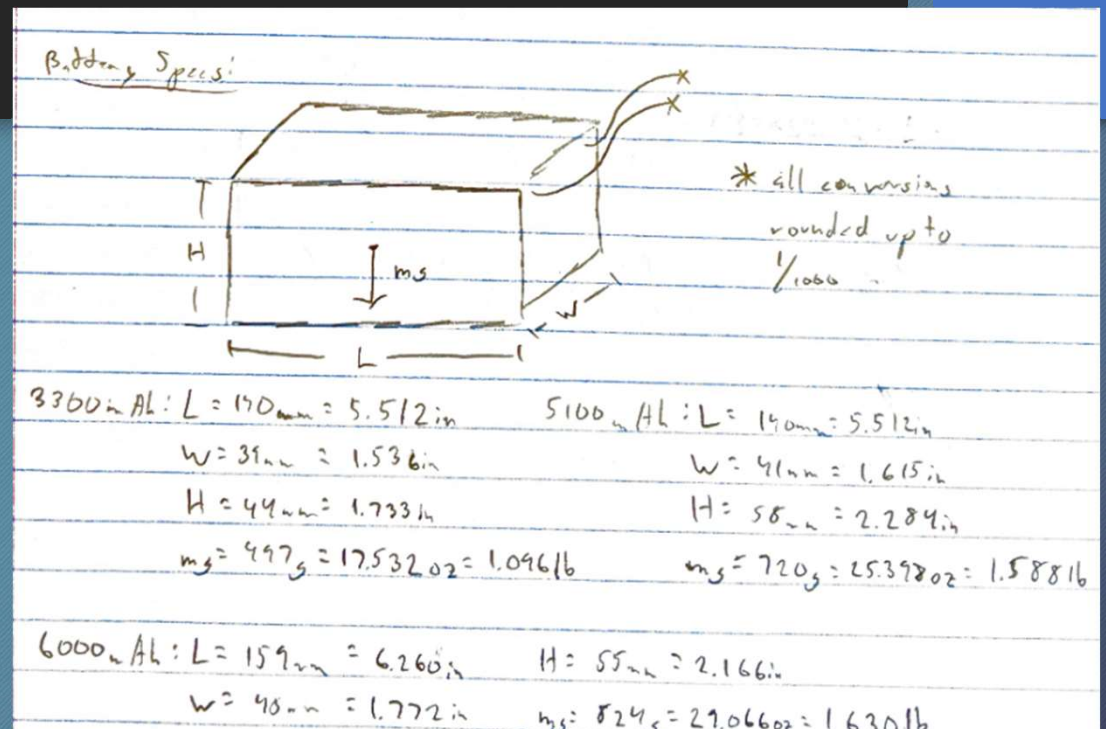 Battery Specs:
* all conversions
rounded up to
1/1000
H
mg
W
L
3300mAh: L = 140mm = 5.512in
W = 39mm = 1.536in
H = 44mm = 1.733in
mg = 497g = 17.532oz = 1.096lb
5100mAh: L = 140mm = 5.512in
W = 41mm = 1.615in
H = 58mm = 2.284in
mg = 720g = 25.398oz = 1.588lb
6000mAh: L = 159mm = 6.260in
W = = 1.772in
H = 55mm = 2.166in
mg = 824g = 29.066oz =